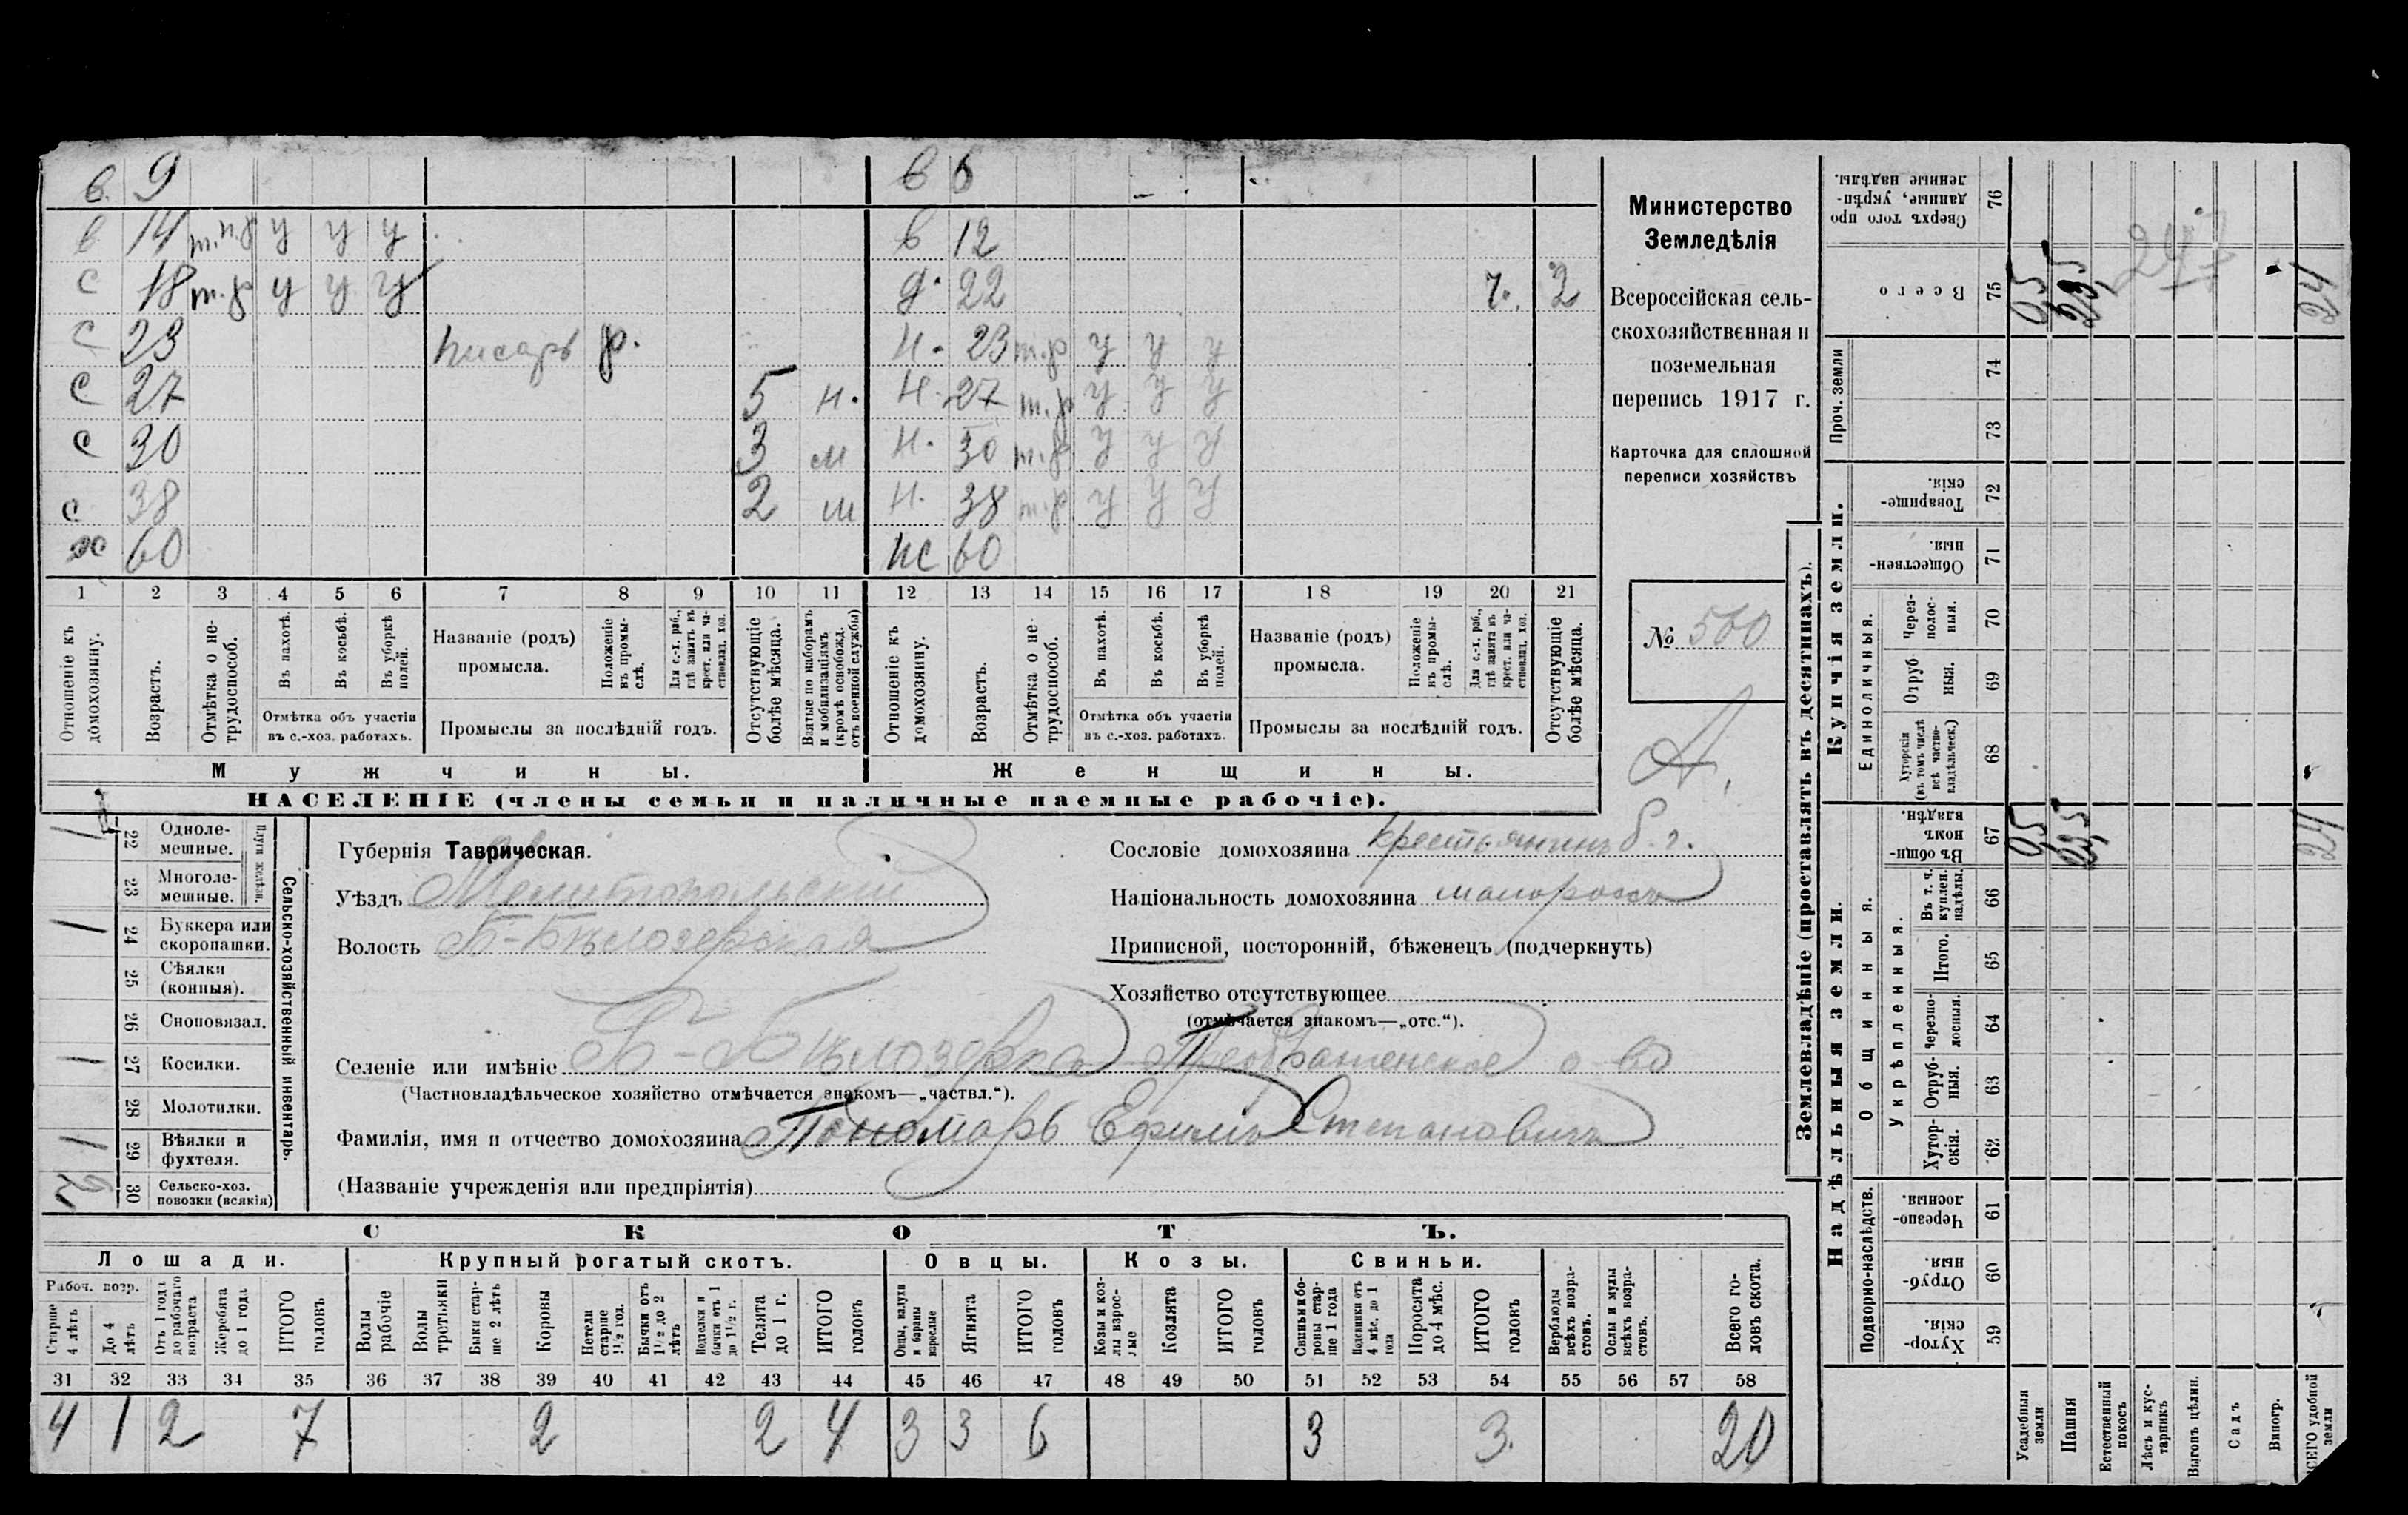 в. 9 в 6
в 14 т.п.р у у у в 12
с 18 т.р у у у д. 22 г. 2
с 23 писарь р. н. 23 т.р у у у
с 27 5 н. н. 27 т.р у у у
с 30 3 м н. 30 т.р у у у
с 38 2 м н. 38 т.р у у у
х 60 жс 60
1 2 3 4 5 6 7 8 9 10 11 12 13 14 15 16 17 18 19 20 21
Отношеніе къ домохозяину.
Возрастъ.
Отмѣтка о нетрудоспособ.
Въ пахотѣ.
Въ косьбѣ.
Въ уборкѣ полей.
Отмѣтка объ участіи
въ с.-хоз. работахъ.
Названіе (родъ)
промысла.
Положеніе въ промыслѣ.
Для с.-х. раб., гдѣ занятъ въ крест. или частновлад. хоз.
Промыслы за послѣдній годъ.
Отсутствующіе болѣе мѣсяца.
Взятые по наборамъ и мобилизаціямъ (кромѣ освобожд. отъ военной службы)
Отношеніе къ домохозяину.
Возрастъ.
Отмѣтка о нетрудоспособ.
Въ пахотѣ.
Въ косьбѣ.
Въ уборкѣ полей.
Отмѣтка объ участіи
въ с.-хоз. работахъ.
Названіе (родъ)
промысла.
Положеніе въ промыслѣ.
Для с.-х. раб., гдѣ занята въ крест. или частновлад. хоз.
Промыслы за послѣдній годъ.
Отсутствующіе болѣе мѣсяца.
Мужчины. Женщины.
НАСЕЛЕНІЕ (члены семьи и наличные наемные рабочіе).
Министерство
Земледѣлія
Всероссійская сель-
скохозяйственная и
поземельная
перепись 1917 г.
Карточка для сплошной
переписи хозяйствъ
№ 560
А.
Сельско-хозяйственный инвентарь.
Плуги желѣзн.
22 Одноле-
мешные. 1
23 Многоле-
мешные.
24 Буккера или
скоропашки. 1
25 Сѣялки
(конныя).
26 Сноповязал.
27 Косилки. 1
28 Молотилки.
29 Вѣялки и
фухтеля. 1
30 Сельско-хоз.
повозки (всякія) 2
Губернія Таврическая.
Уѣздъ Мелитопольскій
Волость Б-Бѣлозерская
Сословіе домохозяина крестьянинъ б. г.
Національность домохозяина малороссъ
Приписной, посторонній, бѣженецъ (подчеркнуть)
Хозяйство отсутствующее
(отмѣчается знакомъ—„отс.“).
Селеніе или имѣніе Б-Бѣлозерка Преображенское о-во
(Частновладѣльческое хозяйство отмѣчается знакомъ—„частвл.“).
Фамилія, имя и отчество домохозяина Пономарь Ефимъ Степановичъ
(Названіе учрежденія или предпріятія)
СКОТЪ.
Лошади. Крупный рогатый скотъ. Овцы. Козы. Свиньи.
Рабоч. возр.
Старше 4 лѣтъ
До 4 лѣтъ
Отъ 1 года до рабочаго возраста
Жеребята до 1 года
ИТОГО головъ
Волы рабочіе
Волы третьяки
Быки старше 2 лѣтъ
Коровы
Нетели старше 1½ год.
Бычки отъ 1½ до 2 лѣтъ
Телята до 1 г.
ИТОГО головъ
Ягнята
ИТОГО головъ
Козы и козлы взрослые
Козлята
ИТОГО головъ
Свиньи и боровы старше 1 года
Подсвинки отъ 4 мѣс. до 1 года
Поросята до 4 мѣс.
ИТОГО головъ
Верблюды всѣхъ возрастовъ.
Ослы и мулы всѣхъ возрастовъ.
Всего головъ скота.
31 32 33 34 35 36 37 38 39 40 41 42 43 44 45 46 47 48 49 50 51 52 53 54 55 56 57 58
4 1 2 7 2 2 4 3 3 6 3 3. 20
Землевладѣніе (проставлять въ десятинахъ).
Надѣльныя земли. Купчія земли.
Подворно-наслѣдств. Общинныя. Укрѣпленныя. Единоличныя. Проч. земли
59 Хуторскія.
60 Отрубныя.
61 Черезполосныя.
62 Хуторскія.
63 Отрубныя.
64 Черезполосныя.
65 Итого.
66 Въ т. ч. куплен. надѣлы.
67 Въ общинномъ владѣн.
68 Хуторскія (въ томъ числѣ всѣ частновладѣльческ.)
69 Отрубныя.
70 Черезполосныя.
71 Общественныя.
72 Товарищескія.
73
74
75 Всего
76 Сверхъ того проданные, укрѣпленные надѣлы.
Усадебныя земли
Пашня
Естественный покосъ
Лѣсъ и кустарникъ
Выгонъ цѣлин.
Садъ
Виногр.
ВСЕГО удобной земли
0,5
23,5
24
0,5
23,5
24